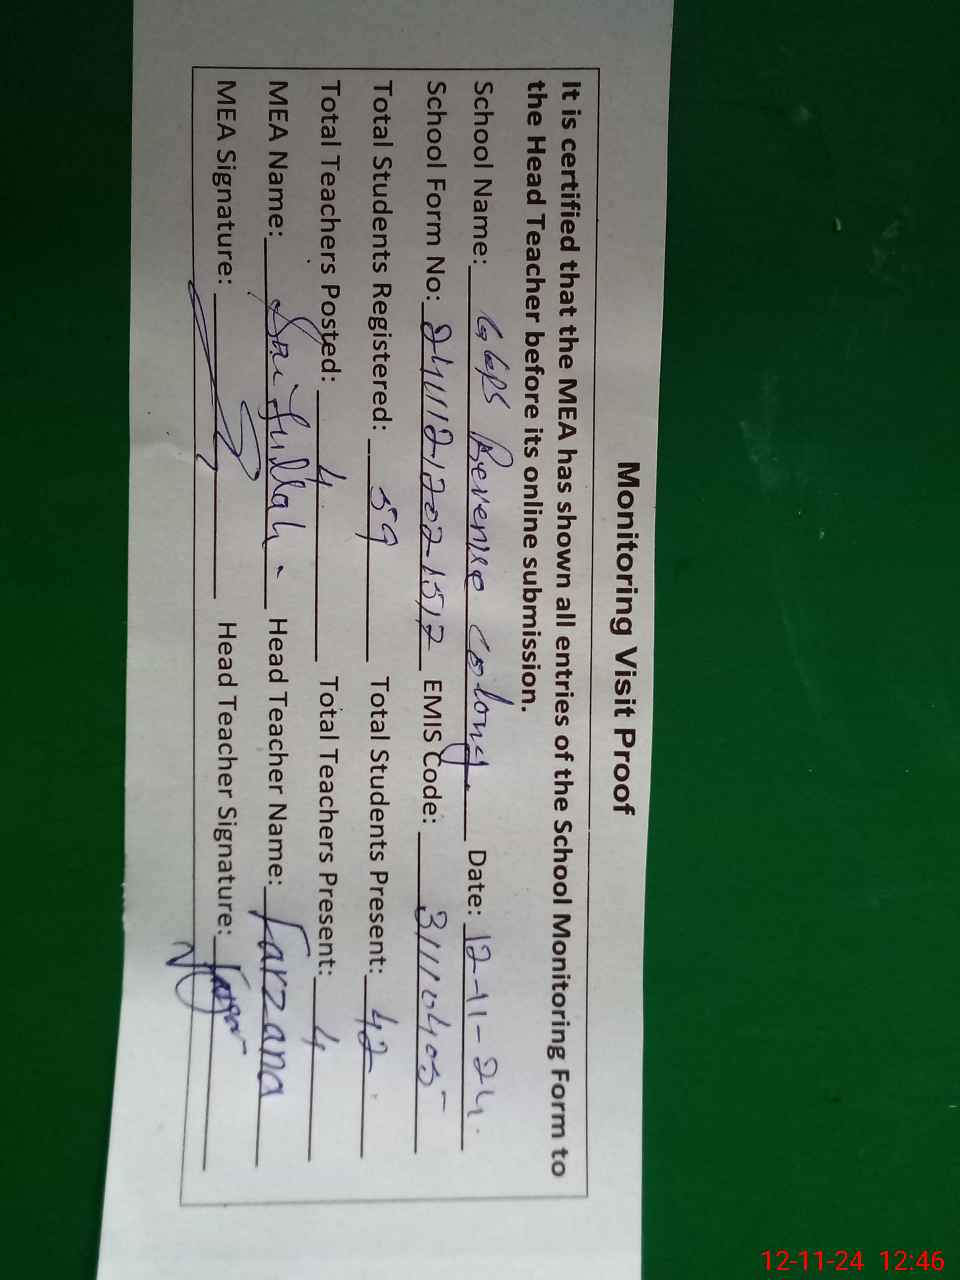 Monitoring Visit Proof
It is certified that the MEA has shown all entries of the School Monitoring Form to
the Head Teacher before its online submission.
School Name: GGPS Revenue Colony. Date: 12-11-24.
School Form No: EMIS Code: 31110405
Total Students Registered: 59 Total Students Present: 42.
Total Teachers Posted: 4 Total Teachers Present: 4
MEA Name: Saifullah Head Teacher Name: Farzana
MEA Signature: Head Teacher Signature:
12-11-24 12:46